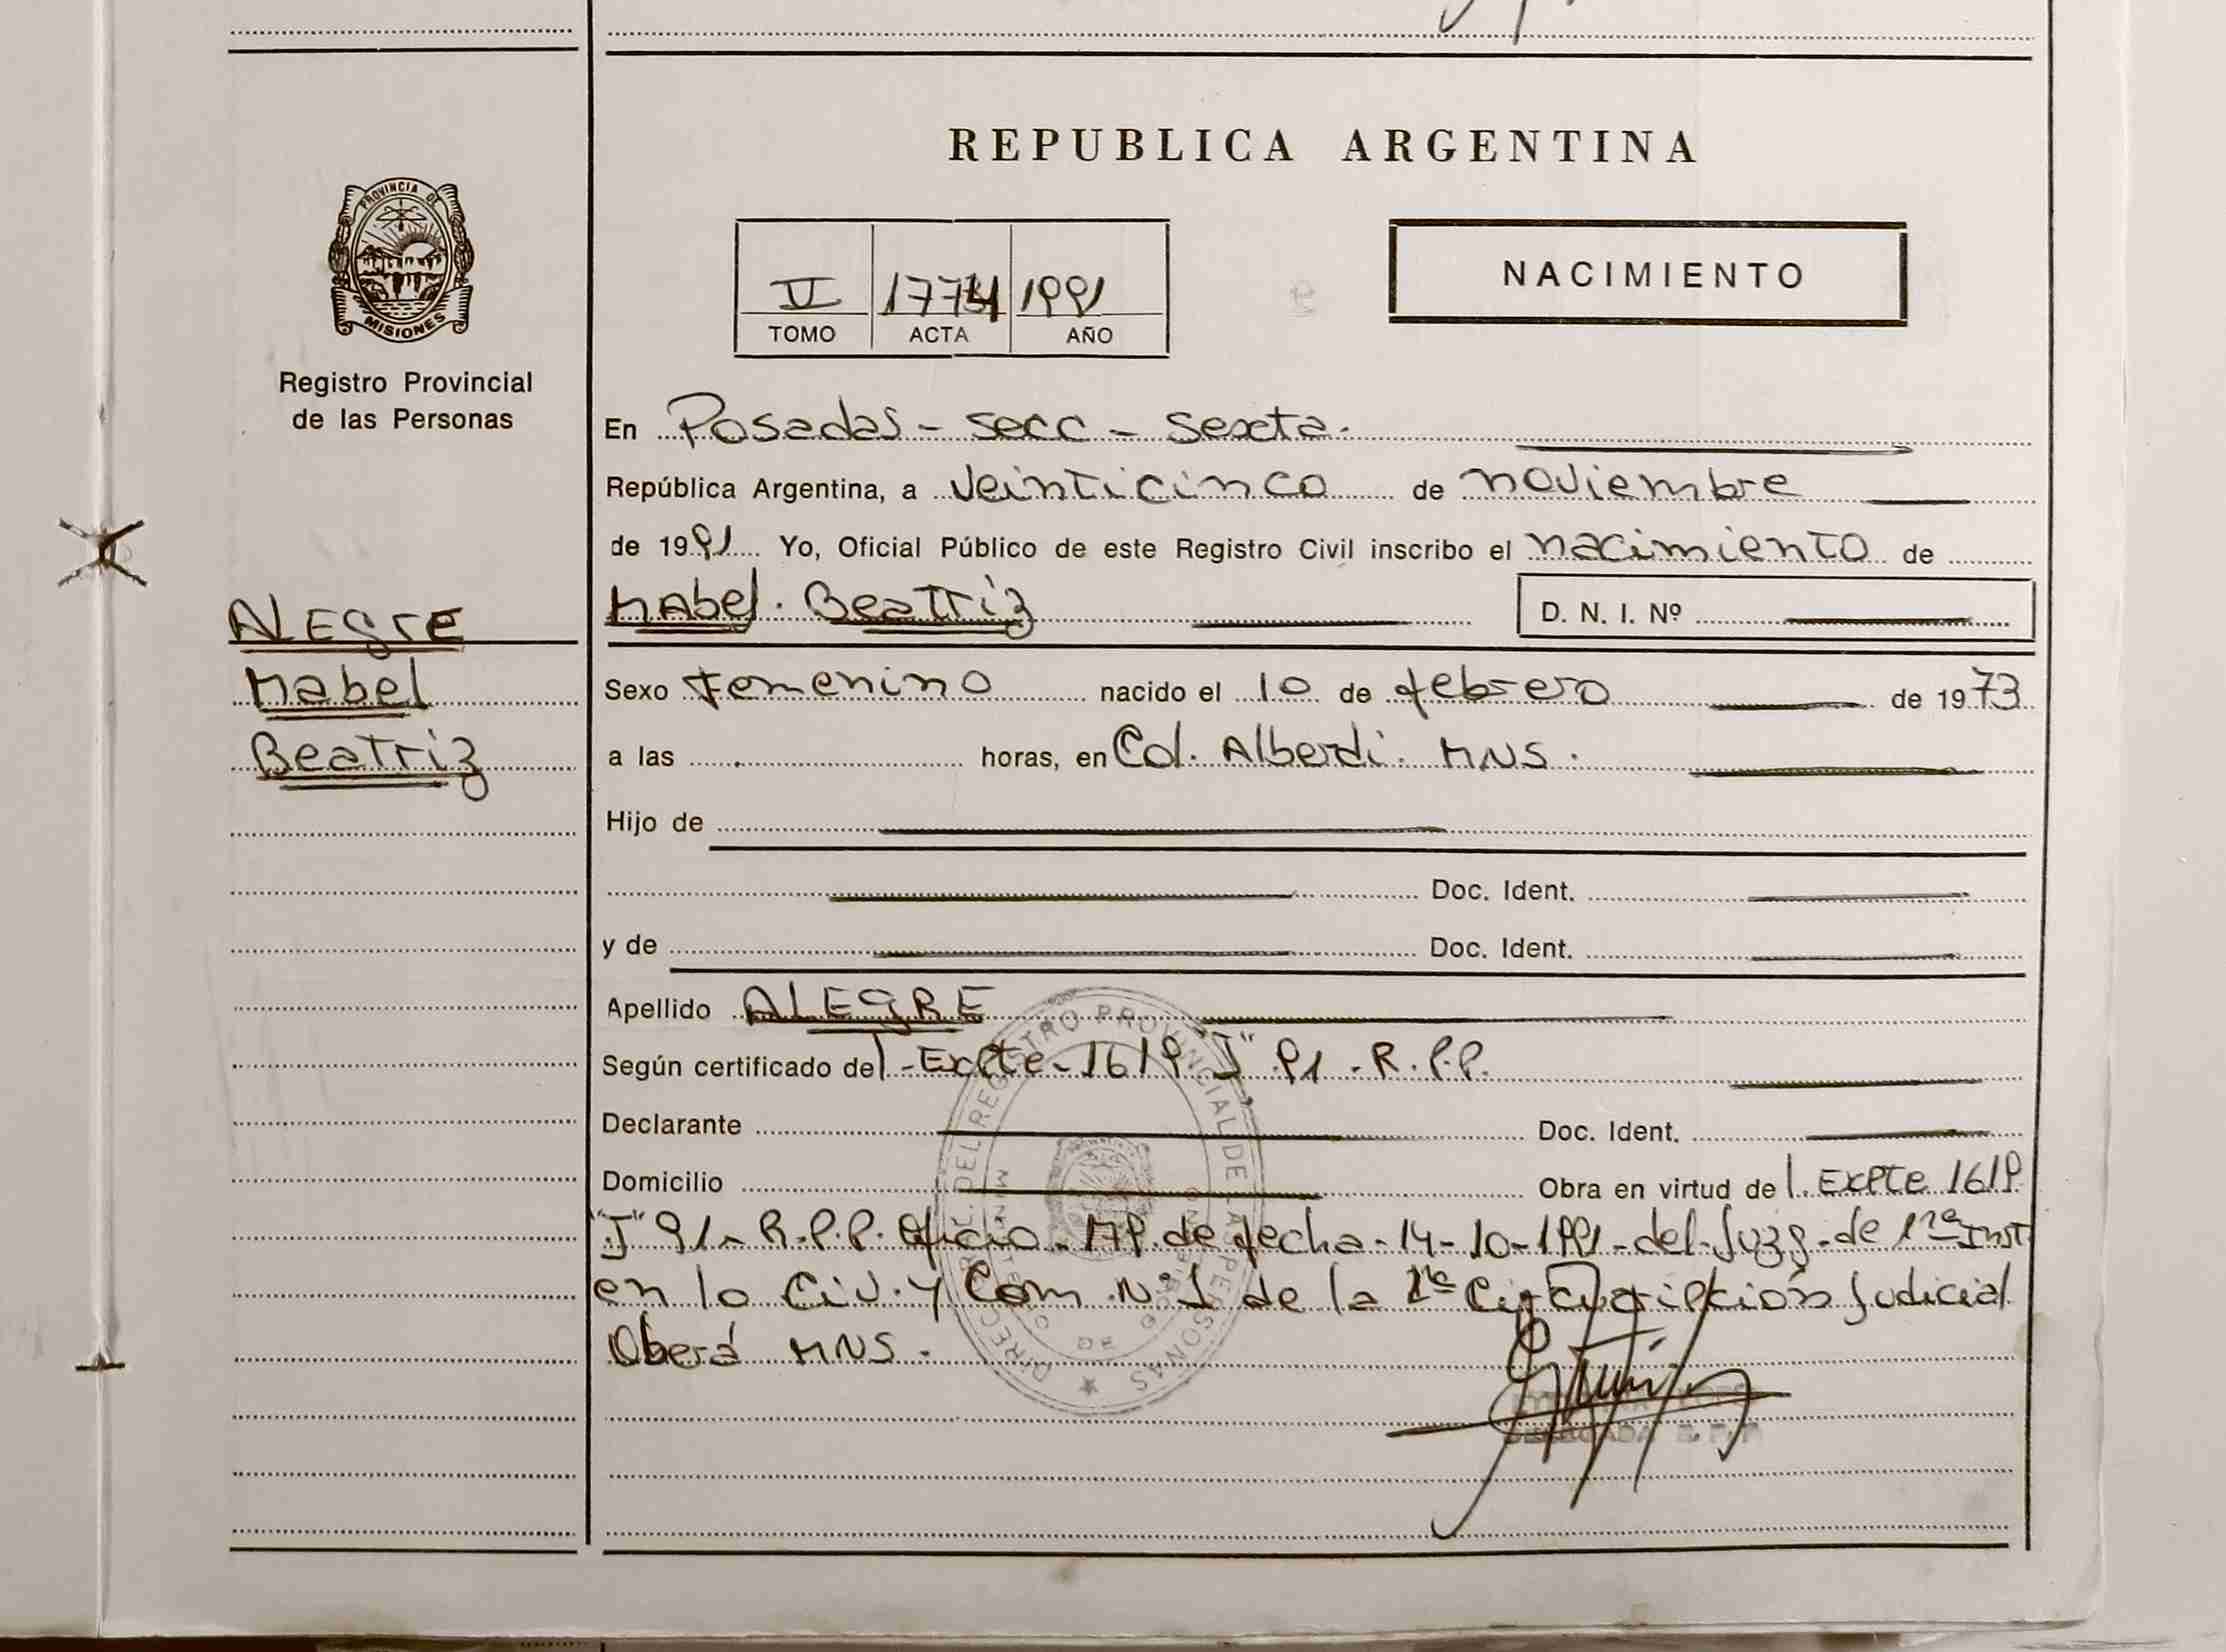 REPUBLICA ARGENTINA
PROVINCIA DE
MISIONES
Registro Provincial
de las Personas
TOMO ACTA 1991 AÑO
NACIMIENTO
En Posadas - secc - Sexta.
República Argentina, a veinticinco de noviembre
de 1991 Yo, Oficial Público de este Registro Civil inscribo el nacimiento de
ALEgrE
Mabel
Beatriz
Mabel. Beatriz D. N. I. Nº
Sexo femenino nacido el 10 de febrero de 1973
a las horas, en Col. Alberdi. MNS.
Hijo de
Doc. Ident.
y de Doc. Ident.
Apellido ALEgRE
Según certificado del - Expte - 1619 "J" 91 - R.P.P.
Declarante Doc. Ident.
Domicilio Obra en virtud del. Expte 1619
"J" 91 - R.P.P. Oficio de fecha - 14-10-1991 - del Juzg. de 1ra Inst
en lo Civ. y Com Nº 1 de la Circunscripción Judicial
Oberá MNS.
DIREC. DEL REGISTRO PROVINCIAL DE LAS PERSONAS